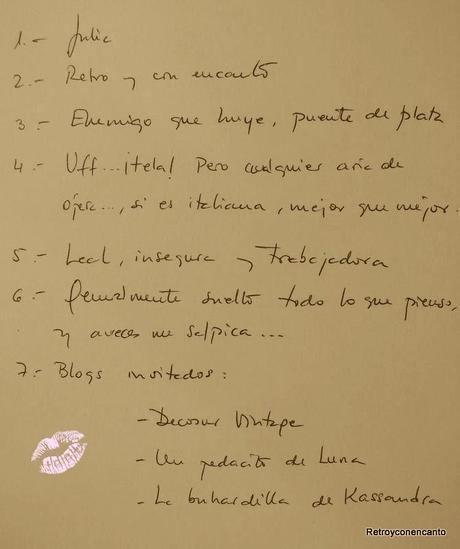 1.- Julia
2.- Retro y con encanto
3.- Enemigo que huye, puente de plata
4.- Uff...¡tela! Pero cualquier aria de
ópera..., si es italiana, mejor que mejor.
5.- Leal, insegura y trabajadora
6.- Generalmente suelto todo lo que pienso,
y aveces me salpica...
7.- Blogs invitados:
- Decosur Vintage
- Un pedacito de Luna
- La buhardilla de Kassandra
Retroyconencanto